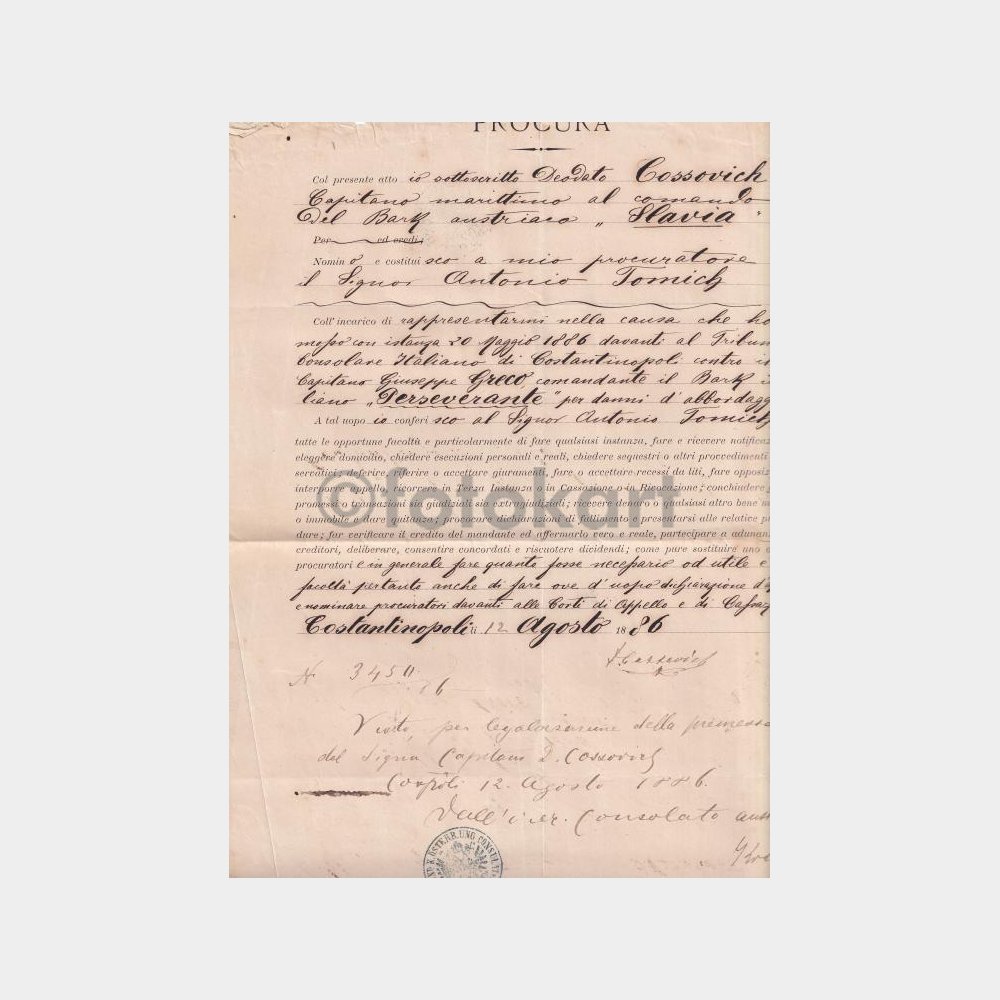 PROCURA
Col presente atto io sottoscritto Deodato Cossovich
Capitano marittimo al comando
del Bark austriaco „Slavia"
Per ed eredi;
Nomino e costituisco a mio procuratore
il Signor Antonio Tomich
Coll'incarico di rappresentarmi nella causa che ho
mosso con istanza 20 Maggio 1886 davanti al Tribun
Consolare Italiano di Costantinopoli contro il
Capitano Giuseppe Greco, comandante il Bark i
liano „Perseverante" per danni d'abbordagg
A tal uopo io conferisco al Signor Antonio Tomich
tutte le opportune facoltà e particolarmente di fare qualsiasi instanza, fare e ricevere notificaz
eleggere domicilio, chiedere esecuzioni personali e reali, chiedere sequestri o altri provvedimenti
deferire, riferire o accettare giuramenti, fare o accettare recessi da liti, fare opposiz
interporre appello, ricorrere in Terza Instanza o in Cassazione o in Rivocazione; conchiudere
promessi o transazioni sia giudiziali sia extragiudiziali; ricevere denaro o qualsiasi altro bene m
o immobile e dare quitanza; provocare dichiarazioni di fallimento e presentarsi alle relative p
dure; far verificare il credito del mandante ed affermarlo vero e reale, partecipare a adunan
creditori, deliberare, consentire concordati e riscuotere dividendi; come pure sostituire uno o
procuratori e in generale fare quanto fosse necessario od utile e
facoltà pertanto anche di fare ove d'uopo dichiarazione d'
e nominare procuratori davanti alle Corti di Appello e di Cassaz
Costantinopoli li 12 Agosto 1886
D. Cossovich
N 3450
Visto per legalizzazione della premessa
del Signor Capitano D. Cossovich
Conpoli 12. Agosto 1886.
Dall'i. e r. Consolato aust
K. ÖSTERR. UNG. CONSULAT
©fotokart